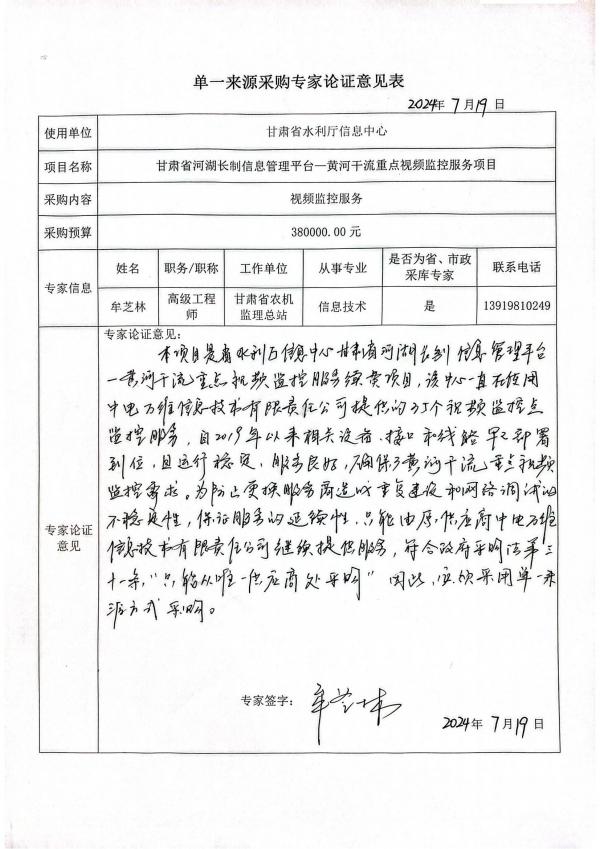 单一来源采购专家论证意见表
2024年 7月19日
使用单位 甘肃省水利厅信息中心
项目名称 甘肃省河湖长制信息管理平台—黄河干流重点视频监控服务项目
采购内容 视频监控服务
采购预算 380000.00 元
专家信息 姓名 职务/职称 工作单位 从事专业 是否为省、市政采库专家 联系电话
牟芝林 高级工程师 甘肃省农机监理总站 信息技术 是 13919810249
专家论证意见
专家论证意见：
本项目是省水利厅信息中心甘肃省河湖长制信息管理平台
一黄河干流重点视频监控服务续费项目，该中心一直在使用
中电万维信息技术有限责任公司提供的35个视频监控点
监控服务，自2019年以来相关设备、接口和线路早已部署
到位，且运行稳定、服务良好，确保了黄河干流重点视频
监控需求。为防止更换服务商造成重复建设和网络调试的
不稳定性，保证服务的延续性，只能由原供应商中电万维
信息技术有限责任公司继续提供服务，符合政府采购法第三
十一条，“只能从唯一供应商处采购”因此，应须采用单一来
源方式采购。
专家签字： 牟芝林
2024年 7月19日